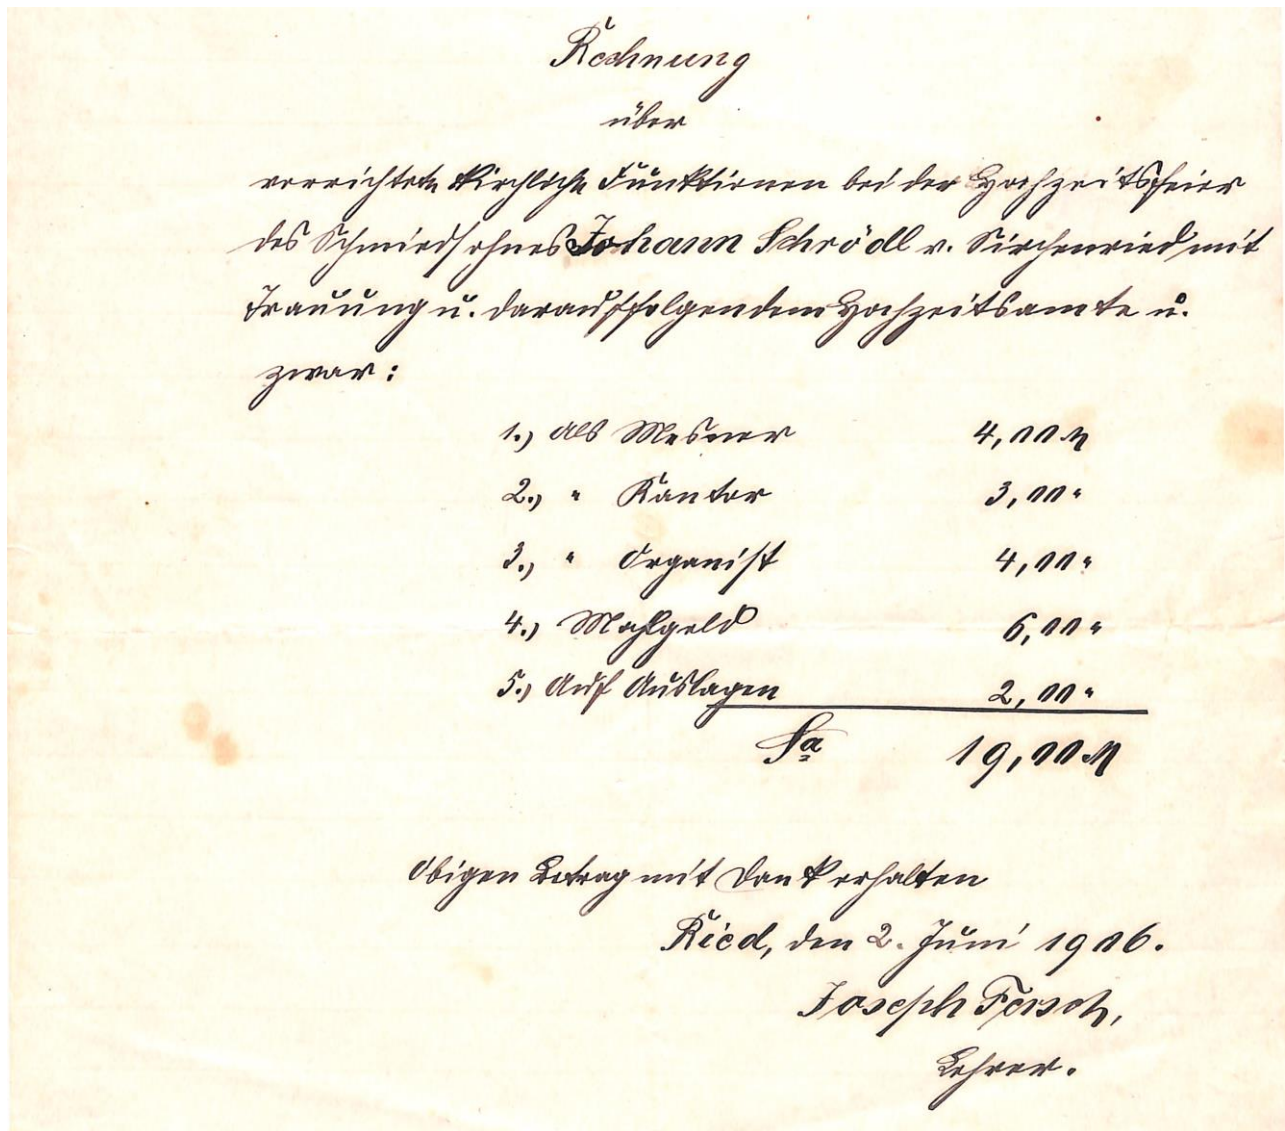 Rechnung
über
verrichtete kirchliche Funktionen bei der Hochzeitsfeier
des Schmiedsohnes Johann Schrödl v. Kirchenried mit
Trauung u. darauffolgendem Hochzeitsamte u.
zwar:
1.) als Mesner 4,00 M
2.) " Kantor 3,00 "
3.) " Organist 4,00 "
4.) Mahlgeld 6,00 "
5.) Auf Auslagen 2,00 "
Sa 19,00 M
Obigen Betrag mit Dank erhalten
Ried, den 2. Juni 1906.
Joseph Fersch,
Lehrer.